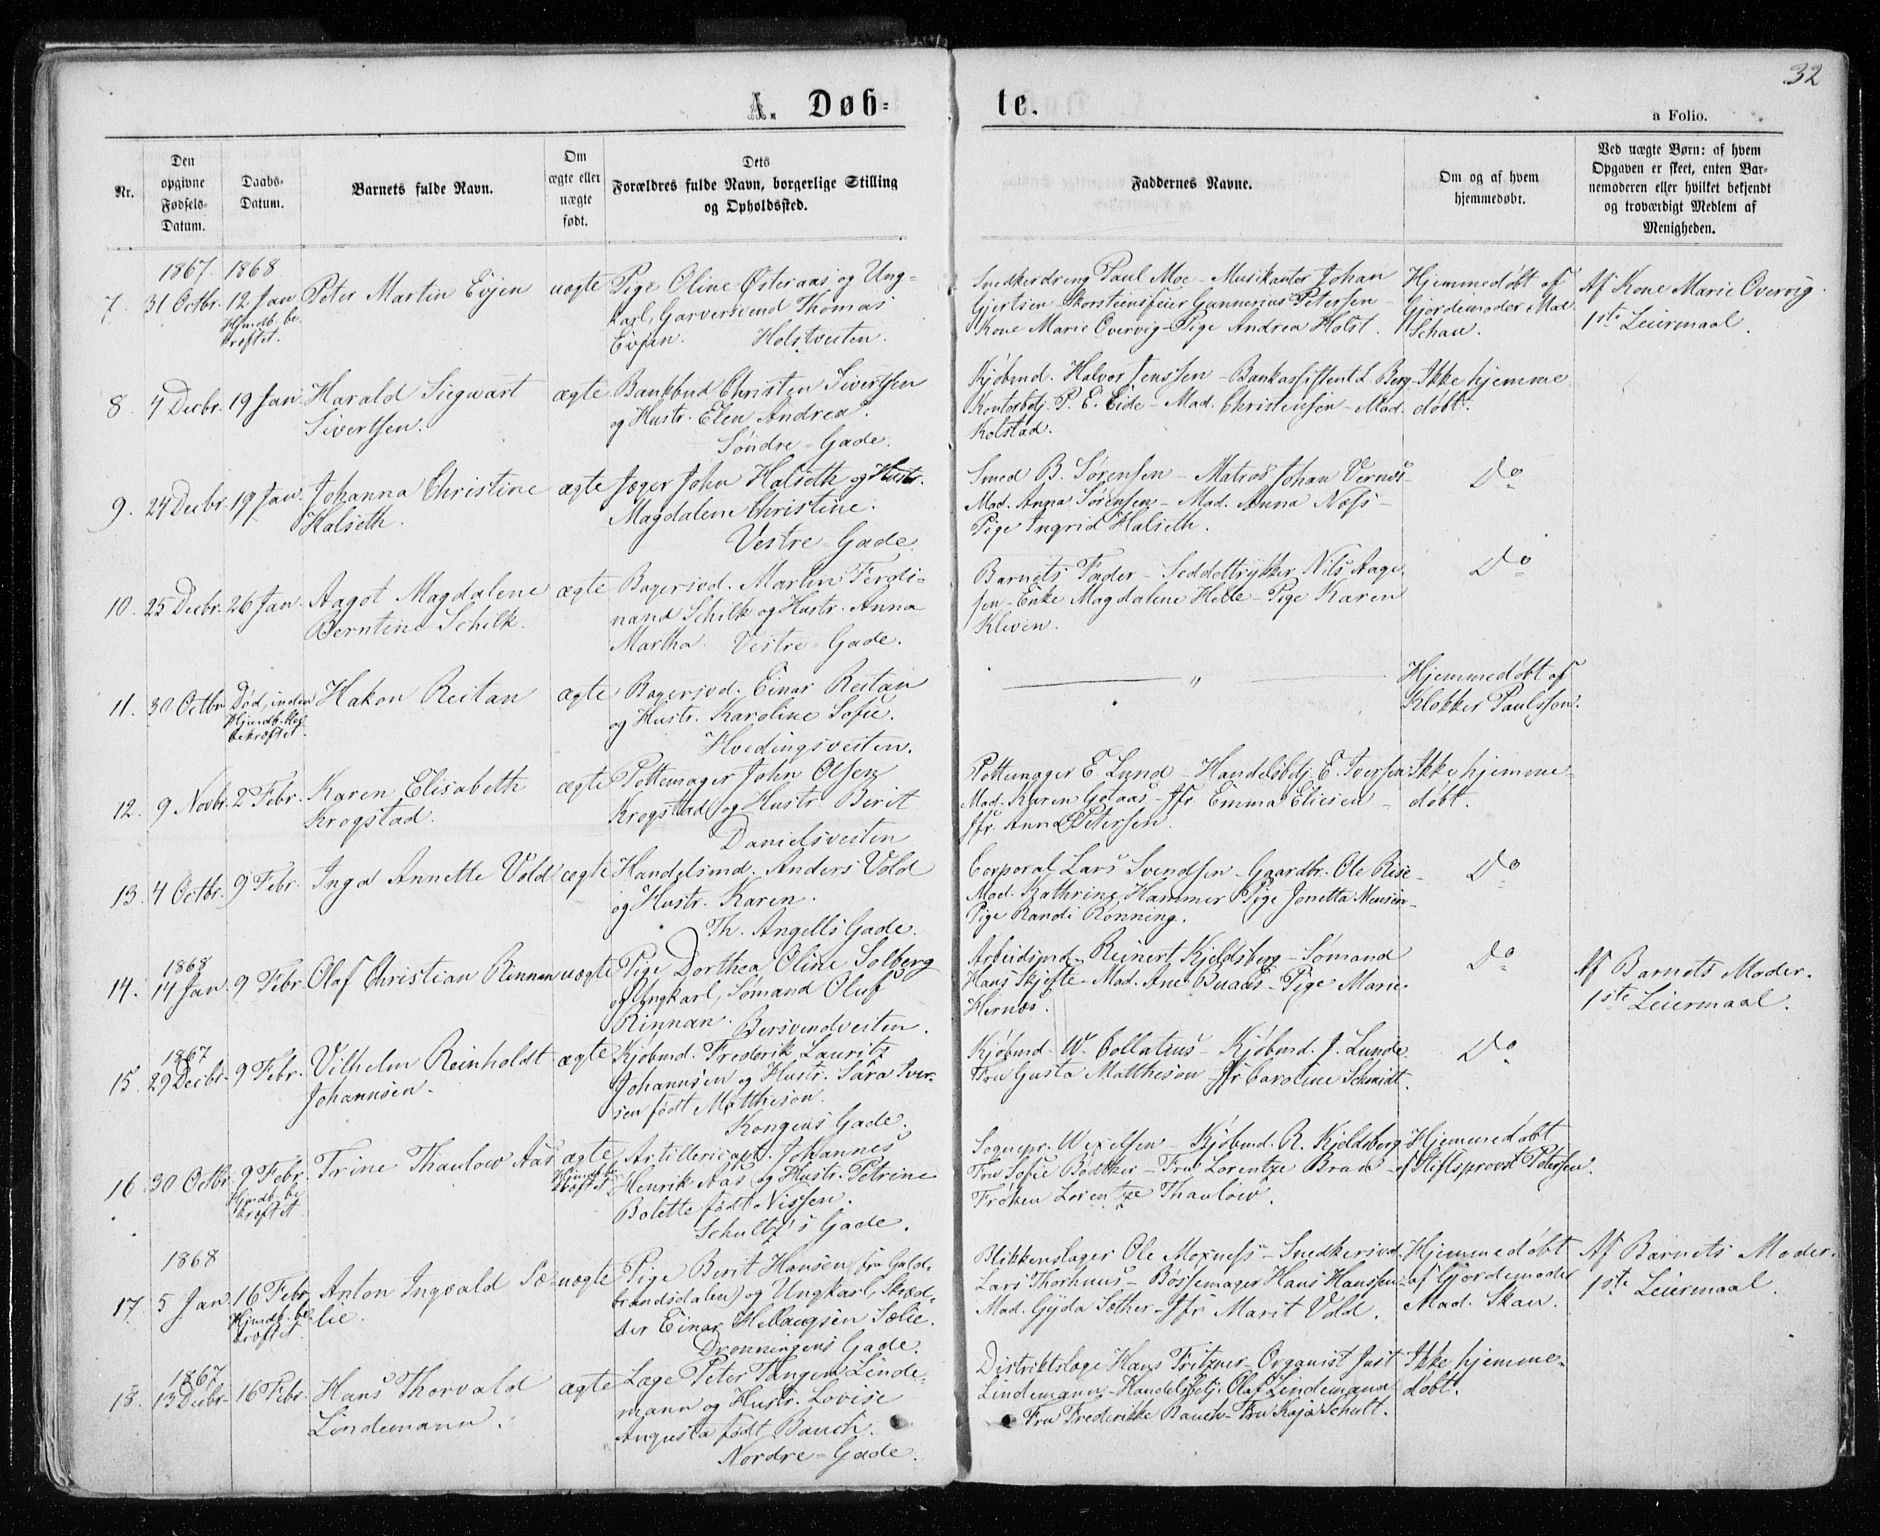 32
A. Døb-
te.
a Folio.
Nr.
Den
opgivne
Fødsels-
Datum.
Daabs-
Datum.
Barnets fulde Navn.
Om
ægte eller
uægte
født.
Dets
Forældres fulde Navn, borgerlige Stilling
og Opholdssted.
Faddernes Navne.
Om og af hvem
hjemmedøbt.
Ved uægte Børn: af hvem
Opgaven er skeet, enten Bar-
nemoderen eller hvilket bekjendt
og troværdigt Medlem af
Menigheden.
1867. 1868.
7. 31 Octbr. 12 Jan
Hjmdb. be-
kræftet.
Peter Martin Evjen
uægte
Pige Oline Østeraas og Ung-
karl, Garversvend Thomas
Evjen. Holstvesten.
Snedkerdreng Paul Moe - Musikanter Johan
Gjertsen - Skorsteinsfeier Gunnerius Petersen -
Kone Marie Overvig - Pige Andrea Holst.
Hjemmedøbt af
Gjordemoder Mad.
Schau.
Af Kone Marie Overvig.
1ste Leiermaal.
8. 4 Decbr. 19 Jan
Harald Siegwart
Sivertsen.
ægte
Bankbud Christen Sivertsen
og Hustr. Elen Andrea.
Søndre-Gade.
Kjøbmd. Halvor Jenssen - Bankassistent L. Berg -
Kontorbetj. P. E. Eide - Mad. Christensen - Mad.
Kolstad.
Ikke hjemme-
døbt.
9. 24 Decbr. 19 Jan.
Johanna Christine
Halseth.
ægte
Jæger John Halseth og Hustr.
Magdalen Christine.
Vestre-Gade.
Smed B. Sørensen - Matros Johan Vernæs -
Mad. Anna Sørensen - Mad. Anna Næss -
Pige Ingrid Halseth.
Do
10. 25 Decbr. 26 Jan.
Aagot Magdalene
Berntine Schilk.
ægte
Bagersvd. Martin Ferdi-
nand Schilk og Hustr. Anna
Martha. Vestre-Gade.
Barnets Fader - Seddeltrykker Nils Aage-
sen - Enke Magdalene Helle - Pige Karen
Kleven.
Do
11. 30 Octbr.
Død, inden
Hjmdb. blev
bekræftet.
Hakon Reitan
ægte
Bagersvd. Einar Reitan
og Hustr. Karoline Sofie.
Hvedingsvesten.
"
Hjemmedøbt af
Klokker Paulsson.
12. 9 Novbr. 2 Febr.
Karen Elisabeth
Krogstad.
ægte
Pottemager John Olsen
Krogstad og Hustr. Berit
Danielsvesten
Pottemager E. Lund - Handelsbetj. E. Iversen
Mad. Karen Gotaas - Jfr. Emma Eliesen -
Jfr. Anna Petersen.
Ikke hjemme-
døbt.
13. 4 Octbr. 9 Febr.
Inga Annette Vold
ægte
Handelsmd. Anders Vold
og Hustr. Karen.
Th. Angells Gade.
Corporal Lars Svendsen - Gaardbr. Ole Rise -
Mad. Kathrine Hammer - Pige Jonetta Monsen -
Pige Randi Rønning.
Do
1868
14. 14 Jan. 9 Febr.
Olaf Christian Rinnan
uægte
Pige Dorthea Oline Solberg
og Ungkarl, Sømand Oluf
Rinnan. Bersvendvesten.
Arbeidsmd. Reinert Kjeldsberg - Sømand
Hans Skjefte - Mad. Ane Buaas - Pige Marie
Hernæs.
Do
Af Barnets Moder.
1ste Leiermaal.
1867
15. 29 Decbr. 9 Febr.
Vilhelm Reinholdt
Johannsen.
ægte
Kjøbmd. Frederik Lauritz
Johannsen og Hustr. Sara Iver-
sen født Mattheson.
Kongens Gade.
Kjøbmd. W. Collatius - Kjøbmd. J. Lunde
Fru Gusta Mattheson - Jfr. Caroline Schmidt.
Do
16. 30 Octbr. 9 Febr.
Hjmdb. be-
kræftet.
Trine Thaulow Aas
ægte
Hjmdb. be-
kræftet
Artillericapt. Johannes
Henrik Aas og Hustr. Petrine
Bolette født Nissen.
Schultz's Gade.
Sognepr. Wexelsen - Kjøbmd. R. Kjeldsberg
Fru Sofie Bødtker - Fru Lorentze Brun -
Frøken Lorentze Thaulow.
Hjemmedøbt
af Stiftsprovst Petersen.
1868
17. 5 Jan. 16 Febr.
Hjmdb. be-
kræftet.
Anton Ingvald Sæ-
lie.
uægte
Pige Berit Hansen (fra Guld-
brandsdalen) og Ungkarl, Skræd-
der Einar Hellaugsen Sælie.
Dronningens Gade.
Blikkenslager Ole Moxness - Snedkersvd.
Lars Thorhuus - Bøssemager Hans Hanssen -
Mad. Gyda Sæther - Jfr. Marit Vold.
Hjemmedøbt
af Gjordemoder
Mad. Skau.
Af Barnets Moder.
1ste Leiermaal.
1867
18. 13 Decbr. 16 Febr.
Hans Thorvald
Lindemann.
ægte
Læge Peter Tangen Linde-
mann og Hustr. Lovise
Augusta født Bauck.
Nordre-Gade.
Distriktslæge Hans Fritzner - Organist Just
Lindemann - Handelsbetj. Olaf Lindemann
Fru Frederikke Bauck - Fru Kaja Schult.
Ikke hjemme-
døbt.